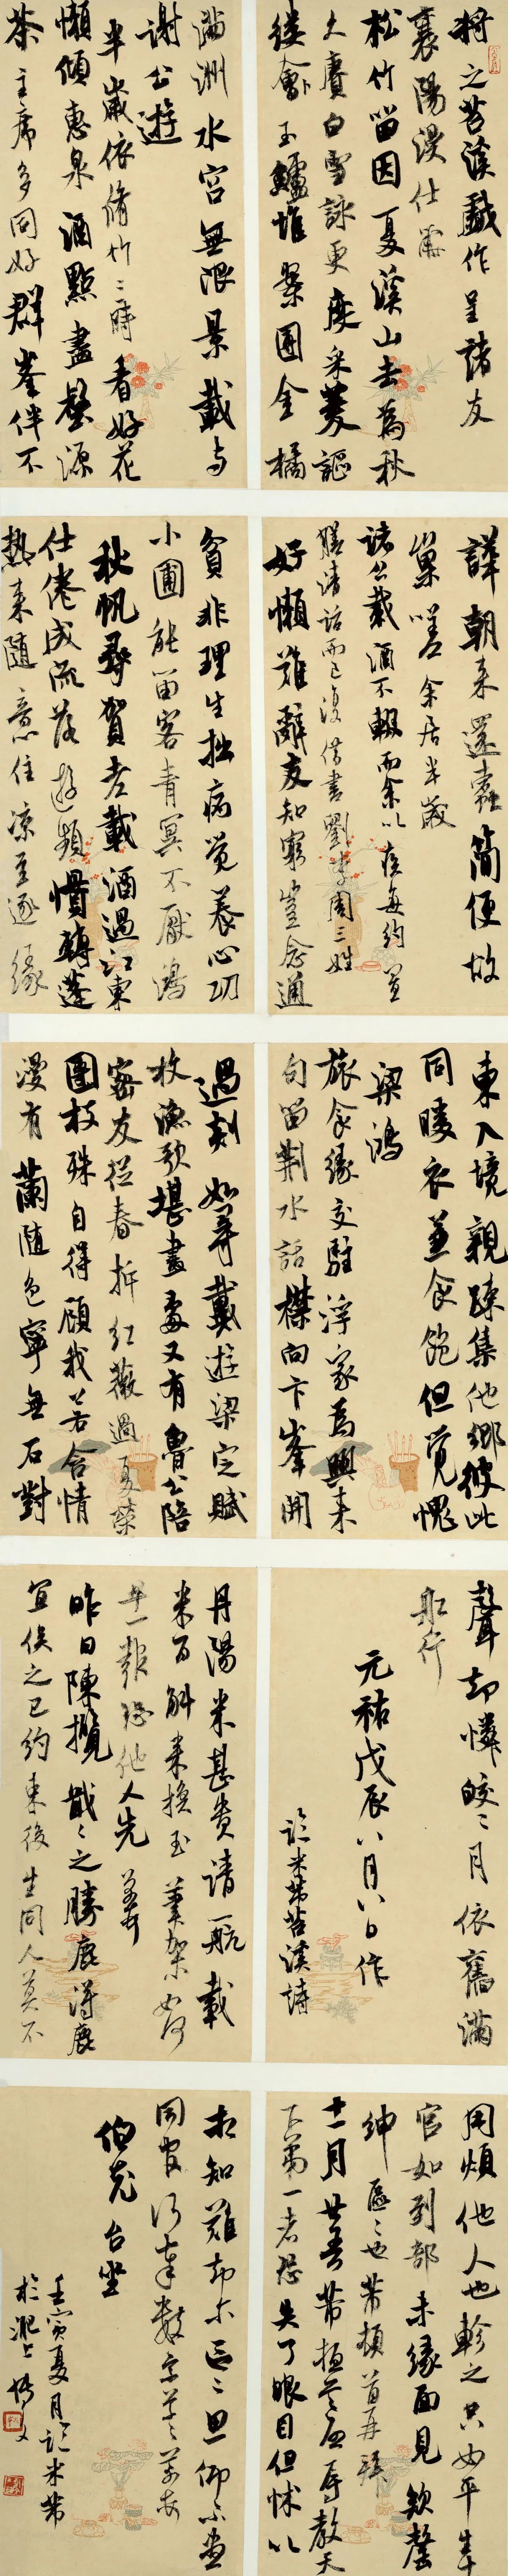 將之苕溪戲作呈諸友
襄陽漫仕黻
松竹留因夏溪山去為秋
久賡白雪詠更度采菱謳
縷會玉鱸堆案團金橘
滿洲水宮無限景載与
謝公遊
半歲依脩竹三時看好花
懶傾惠泉酒點盡壑源
茶主席多同好群峯伴不
譁朝來還蠹簡便起故
巢嗟余居半歲
諸公載酒不輟而余以疾每約置
膳清話而已復借書劉李周三姓
好懶難辭友知窮豈念通
貧非理生拙病覺養心功
小圃能留客青冥不厭鴻
秋帆尋賀老載酒過江東
仕倦成流落遊頻慣轉蓬
熱來隨意住涼至逐緣
東入境親疎集他鄉彼此
同暖衣兼食飽但覺愧
梁鴻
旅食緣交駐浮家為興來
句留荆水話襟向卞峯開
過剡如尋戴遊梁定賦
枚漁歌堪畫處又有魯公陪
密友從春拆紅薇過夏榮
團枝殊自得顧我若含情
漫有蘭隨色寧無石對
聲却憐皎皎月依舊滿
船行
元祐戊辰八月八日作
臨米芾苕溪詩
丹陽米甚貴請一航載
米百斛來換玉筆架如何
早一報恐他人先芾
昨日陳攬戢戢之勝鹿得鹿
宜俟之已約束後生同人莫不
用煩他人也軫之只如平生
官如到部未緣面見欽罄
紳區區也芾頓首再拜
十一月廿五日芾
下第一者恐失了眼目但怵以
相知難却尔區區思仰不盡
同官行奉數字草草芾頓首
伯充台坐
壬寅夏月臨米芾